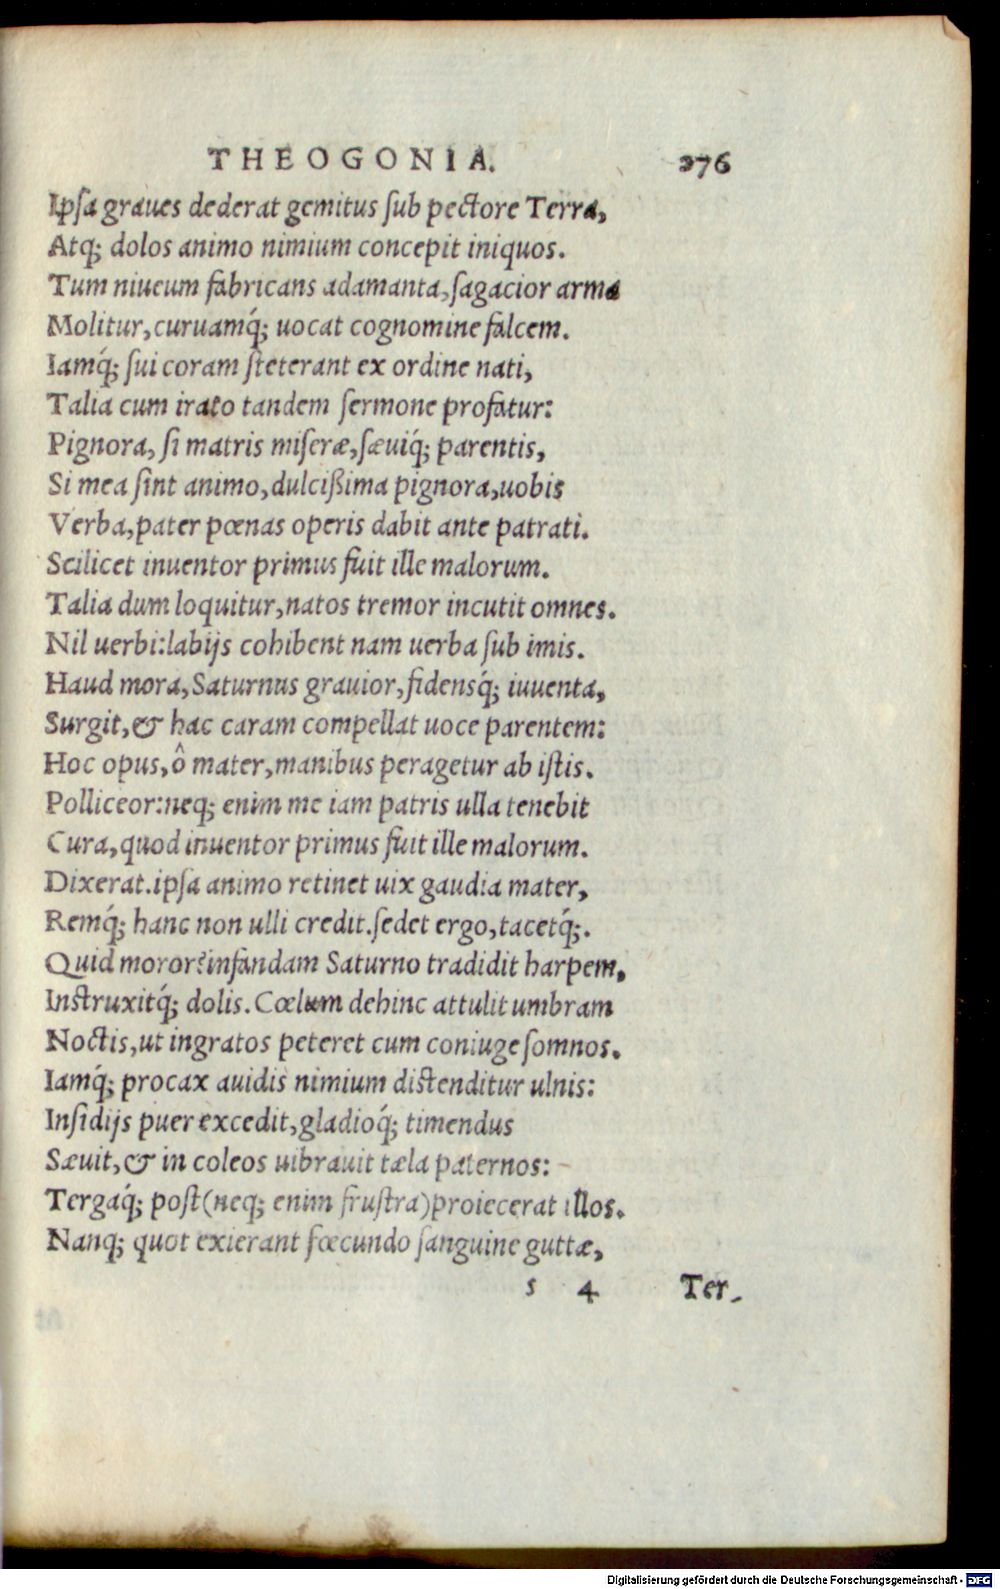 THEOGONIA. 276
Ipſa graues dederat gemitus ſub pectore Terra,
Atq; dolos animo nimium concepit iniquos.
Tum niueum fabricans adamanta,ſagacior arma
Molitur,curuamq́; uocat cognomine falcem.
Iamq́; ſui coram ſteterant ex ordine nati,
Talia cum irato tandem ſermone profatur:
Pignora, ſi matris miſeræ,ſæuiq́; parentis,
Si mea ſint animo,dulcißima pignora,uobis
Verba,pater pœnas operis dabit ante patrati.
Scilicet inuentor primus fuit ille malorum.
Talia dum loquitur,natos tremor incutit omnes.
Nil uerbi:labijs cohibent nam uerba ſub imis.
Haud mora,Saturnus grauior,fidensq́; iuuenta,
Surgit,& hac caram compellat uoce parentem:
Hoc opus,ô mater,manibus peragetur ab iſtis.
Polliceor:neq; enim me iam patris ulla tenebit
Cura,quod inuentor primus fuit ille malorum.
Dixerat.ipſa animo retinet uix gaudia mater,
Remq́; hanc non ulli credit.ſedet ergo,tacetq́;.
Quid moror?infandam Saturno tradidit harpem,
Inſtruxitq́; dolis. Cœlum dehinc attulit umbram
Noctis,ut ingratos peteret cum coniuge ſomnos.
Iamq́; procax auidis nimium diſtenditur ulnis:
Inſidijs puer excedit,gladioq́; timendus
Sæuit,& in coleos uibrauit tæla paternos:
Tergaq́; poſt(neq; enim fruſtra)proiecerat illos.
Nanq; quot exierant fœcundo ſanguine guttæ,
s 4 Ter-
Digitalisierung gefördert durch die Deutsche Forschungsgemeinschaft - DFG